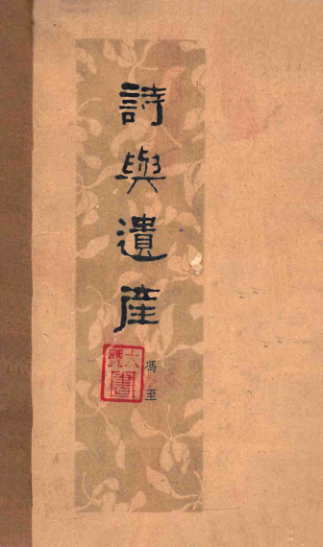 詩與遺產
馮至